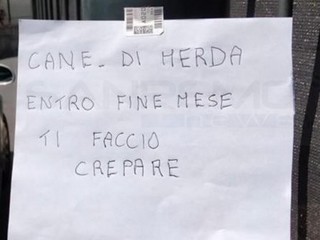 CANE. DI MERDA
ENTRO FINE MESE
TI FACCIO
CREPARE